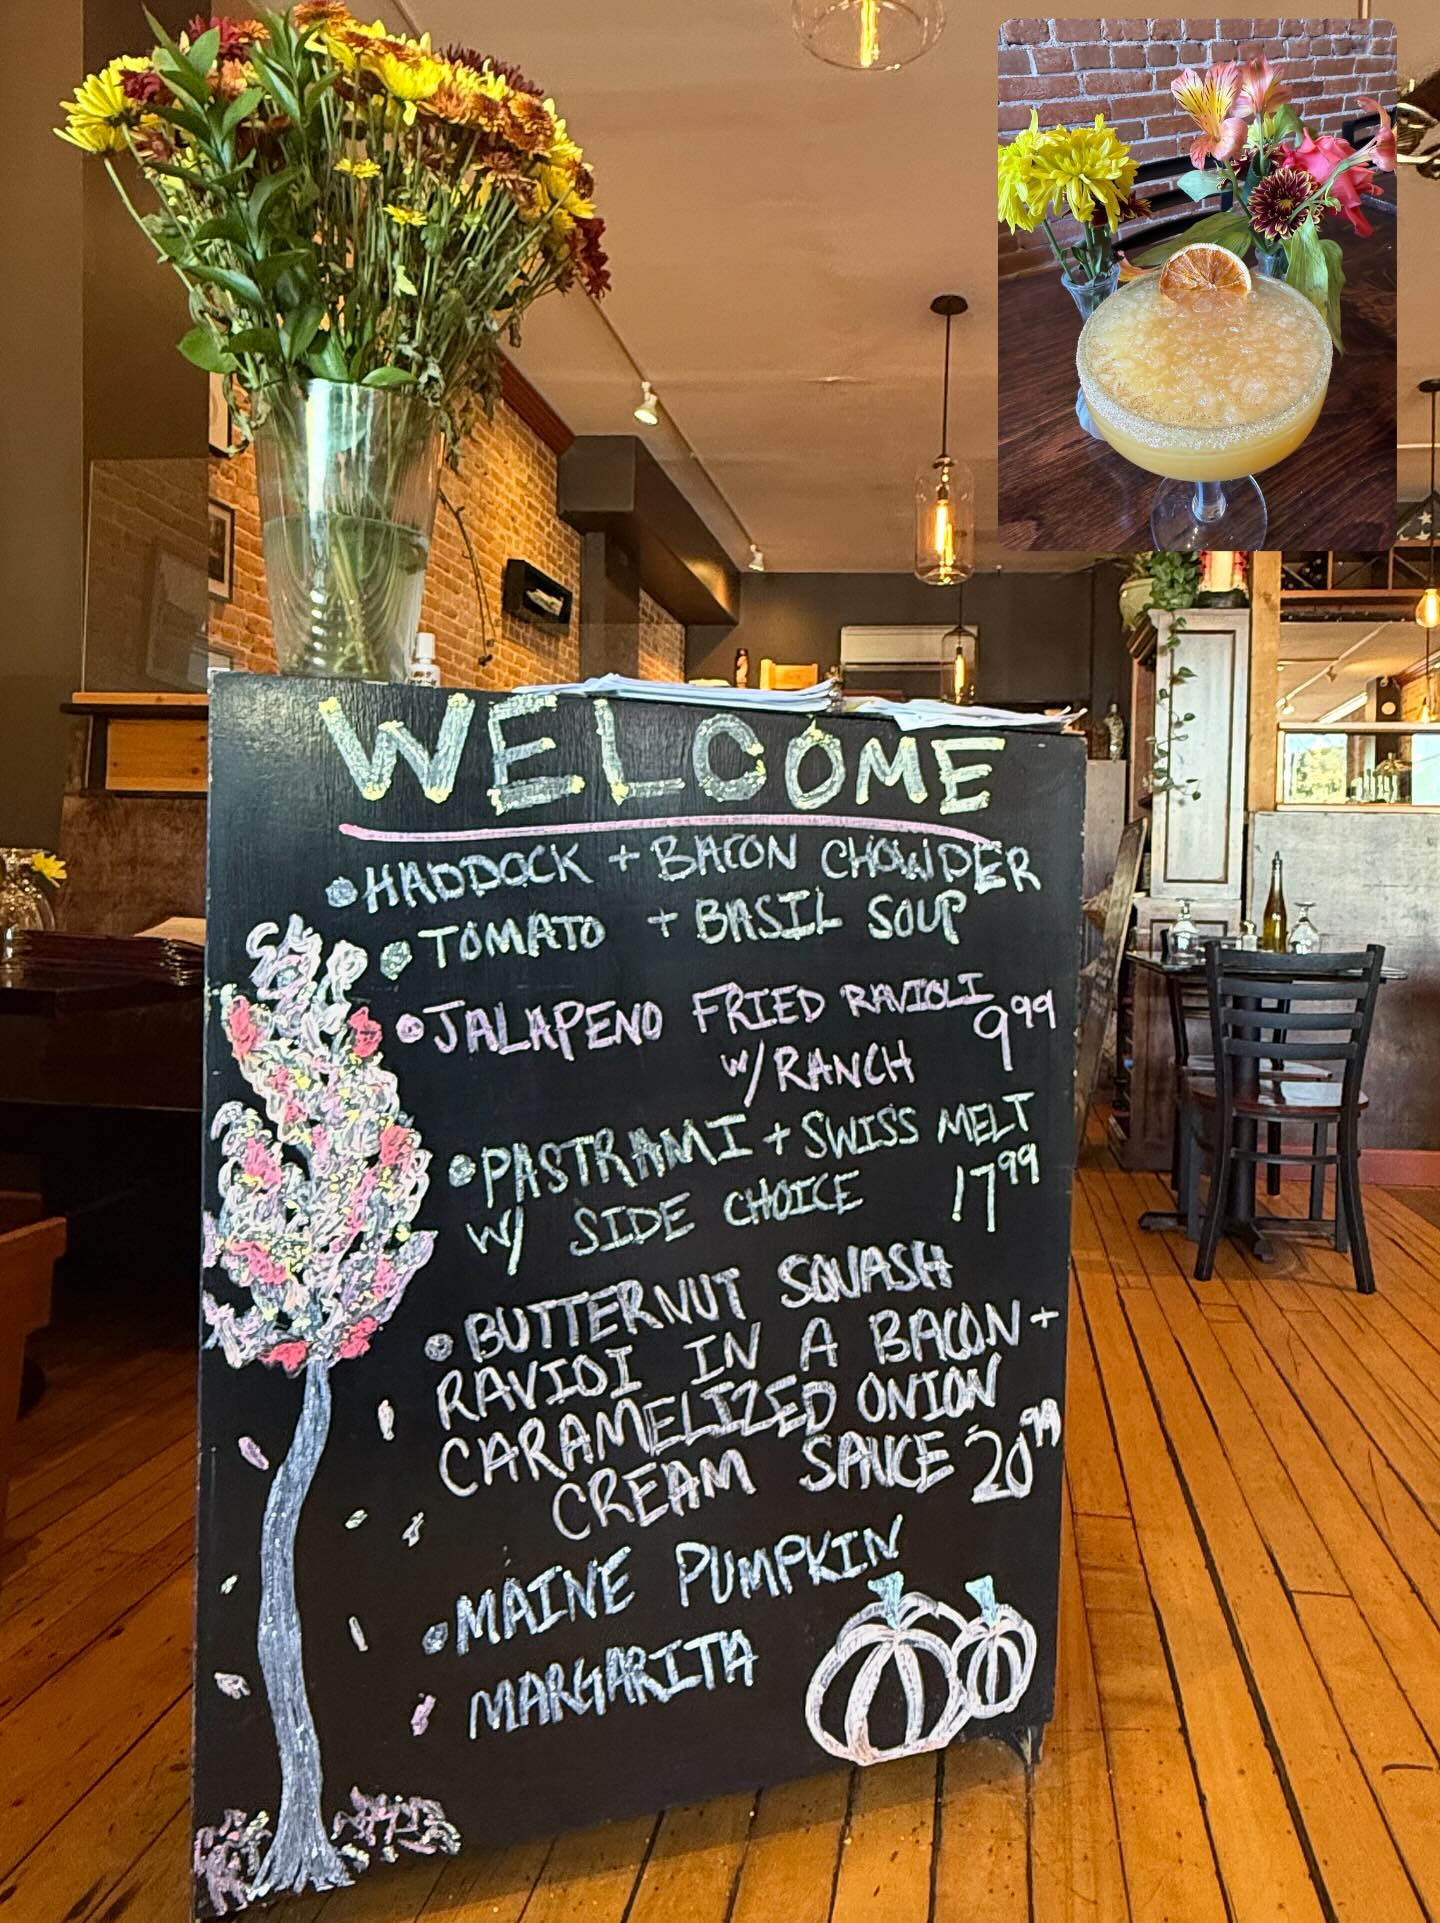 WELCOME
•HADDOCK + BACON CHOWDER
•TOMATO + BASIL SOUP
•JALAPENO FRIED RAVIOLI 9.99
w/RANCH
•PASTRAMI + SWISS MELT
W/ SIDE CHOICE 17.99
•BUTTERNUT SQUASH
RAVIOI IN A BACON +
CARAMELIZED ONION
CREAM SAUCE 20.99
•MAINE PUMPKIN
MARGARITA